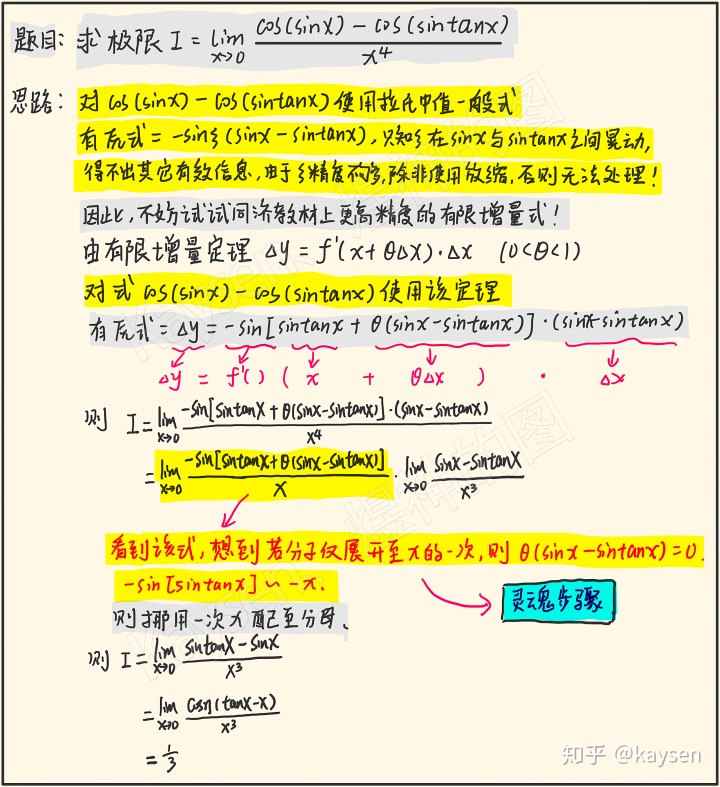 题目: 求极限 I = lim x→0 cos(sinx) − cos(sintanx) / x⁴
思路: 对 cos(sinx) − cos(sintanx) 使用拉氏中值一般式
有原式 = −sinξ (sinx − sintanx), 只知ξ在sinx与sintanx之间晃动,
得不出其它有效信息, 由于ξ精度不够, 除非使用放缩, 否则无法处理!
因此, 不妨试试同济教材上更高精度的有限增量式!
由有限增量定理 Δy = f'(x+θΔx)·Δx (0<θ<1)
对式 cos(sinx) − cos(sintanx) 使用该定理
有原式 = Δy = −sin[sintanx + θ(sinx−sintanx)]·(sinx−sintanx)
Δy = f'( ) ( x + θΔx ) · Δx
则 I = lim x→0 −sin[sintanx + θ(sinx−sintanx)]·(sinx−sintanx) / x⁴
= lim x→0 −sin[sintanx + θ(sinx−sintanx)] / x · lim x→0 sinx−sintanx / x³
看到该式, 想到若分子仅展开至x的一次, 则 θ(sinx−sintanx)=0.
−sin[sintanx] ~ −x.
灵魂步骤
则挪用一次x配至分母、
则 I = lim x→0 sintanx − sinx / x³
= lim x→0 cosη(tanx−x) / x³
= 1/3
知乎 @kaysen